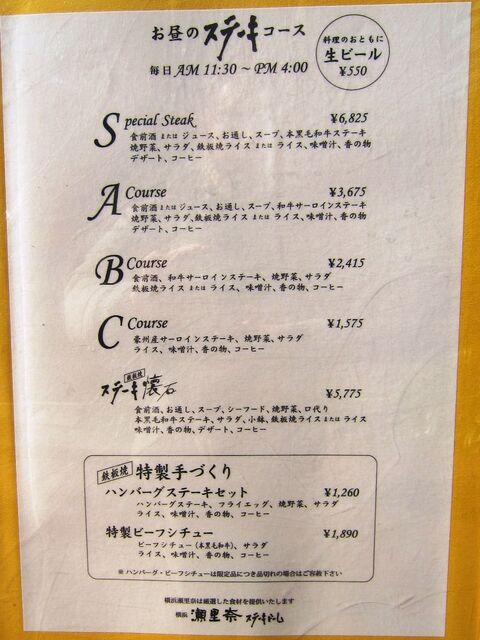 お昼のステーキコース
毎日 AM 11:30 ～ PM 4:00
料理のおともに
生ビール
¥550
Special Steak ¥6,825
食前酒 または ジュース、お通し、スープ、本黒毛和牛ステーキ
焼野菜、サラダ、鉄板焼ライス または ライス、味噌汁、香の物
デザート、コーヒー
A Course ¥3,675
食前酒 または ジュース、お通し、スープ、和牛サーロインステーキ
焼野菜、サラダ、鉄板焼ライス または ライス、味噌汁、香の物
デザート、コーヒー
B Course ¥2,415
食前酒、和牛サーロインステーキ、焼野菜、サラダ
鉄板焼ライス または ライス、味噌汁、香の物、コーヒー
C Course ¥1,575
豪州産サーロインステーキ、焼野菜、サラダ
ライス、味噌汁、香の物、コーヒー
鉄板焼
ステーキ懐石 ¥5,775
食前酒、お通し、スープ、シーフード、焼野菜、口代り
本黒毛和牛ステーキ、サラダ、小鉢、鉄板焼ライス または ライス
味噌汁、香の物、デザート、コーヒー
鉄板焼 特製手づくり
ハンバーグステーキセット ¥1,260
ハンバーグステーキ、フライエッグ、焼野菜、サラダ
ライス、味噌汁、香の物、コーヒー
特製ビーフシチュー ¥1,890
ビーフシチュー(本黒毛和牛)、サラダ
ライス、味噌汁、香の物、コーヒー
※ ハンバーグ・ビーフシチューは限定品につき品切れの場合はご容赦下さい
横浜瀬里奈は厳選した食材を提供いたします
横浜 瀬里奈 ステーキルーム